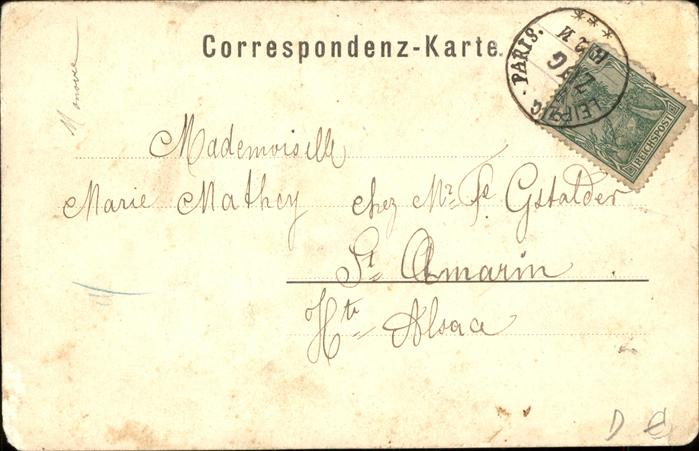 Correspondenz-Karte.
LEIPZIG - PARIS.
ZUG
REICHSPOST
Mademoiselle
Marie Mathey chez Mr. Gstalder
St. Amarin
Hte Alsace
D €